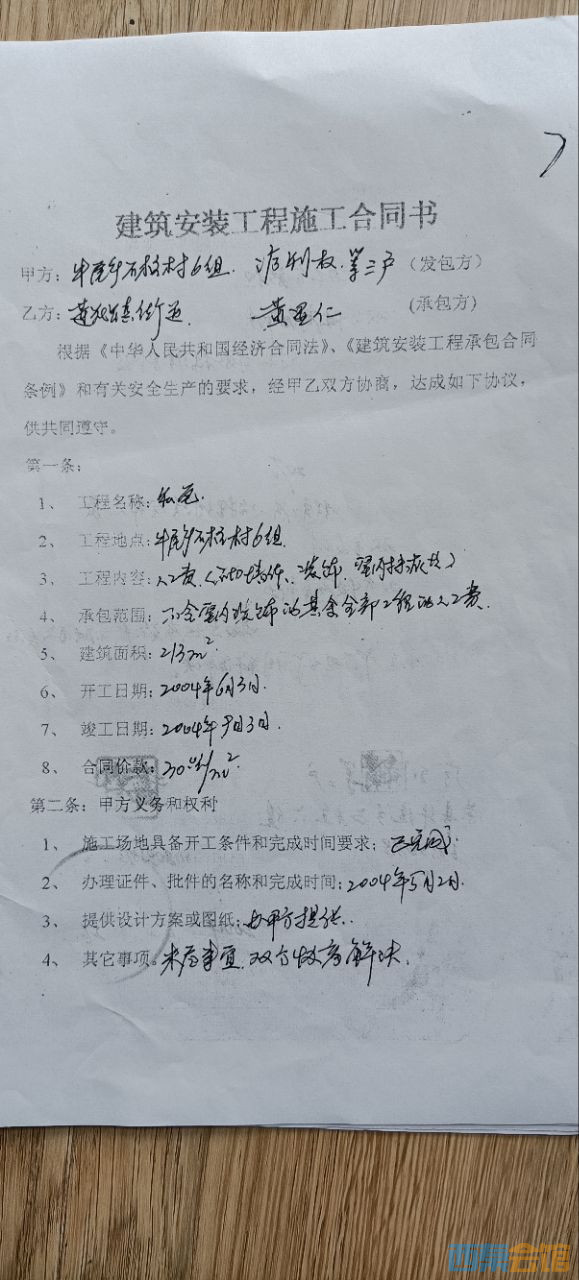 建筑安装工程施工合同书
甲方：牛尾乡石桂村6组. 权. 等三户（发包方）
乙方：镇街道. 黄显仁 (承包方)
根据《中华人民共和国经济合同法》、《建筑安装工程承包合同
条例》和有关安全生产的要求，经甲乙双方协商，达成如下协议，
供共同遵守。
第一条：
1、 工程名称：私宅.
2、 工程地点：牛尾乡石桂村6组.
3、 工程内容：人工费
4、 承包范围：不含室内装饰的其余全部工程的人工费.
5、 建筑面积：213m²
6、 开工日期：2004年6月3日.
7、 竣工日期：2004年9月3日.
8、 合同价款：/m²
第二条：甲方义务和权利
1、 施工场地具备开工条件和完成时间要求；已完成.
2、 办理证件、批件的名称和完成时间；2004年5月2日.
3、 提供设计方案或图纸；由甲方提供.
4、 其它事项。未尽事宜.双方协商解决.
西祠会馆